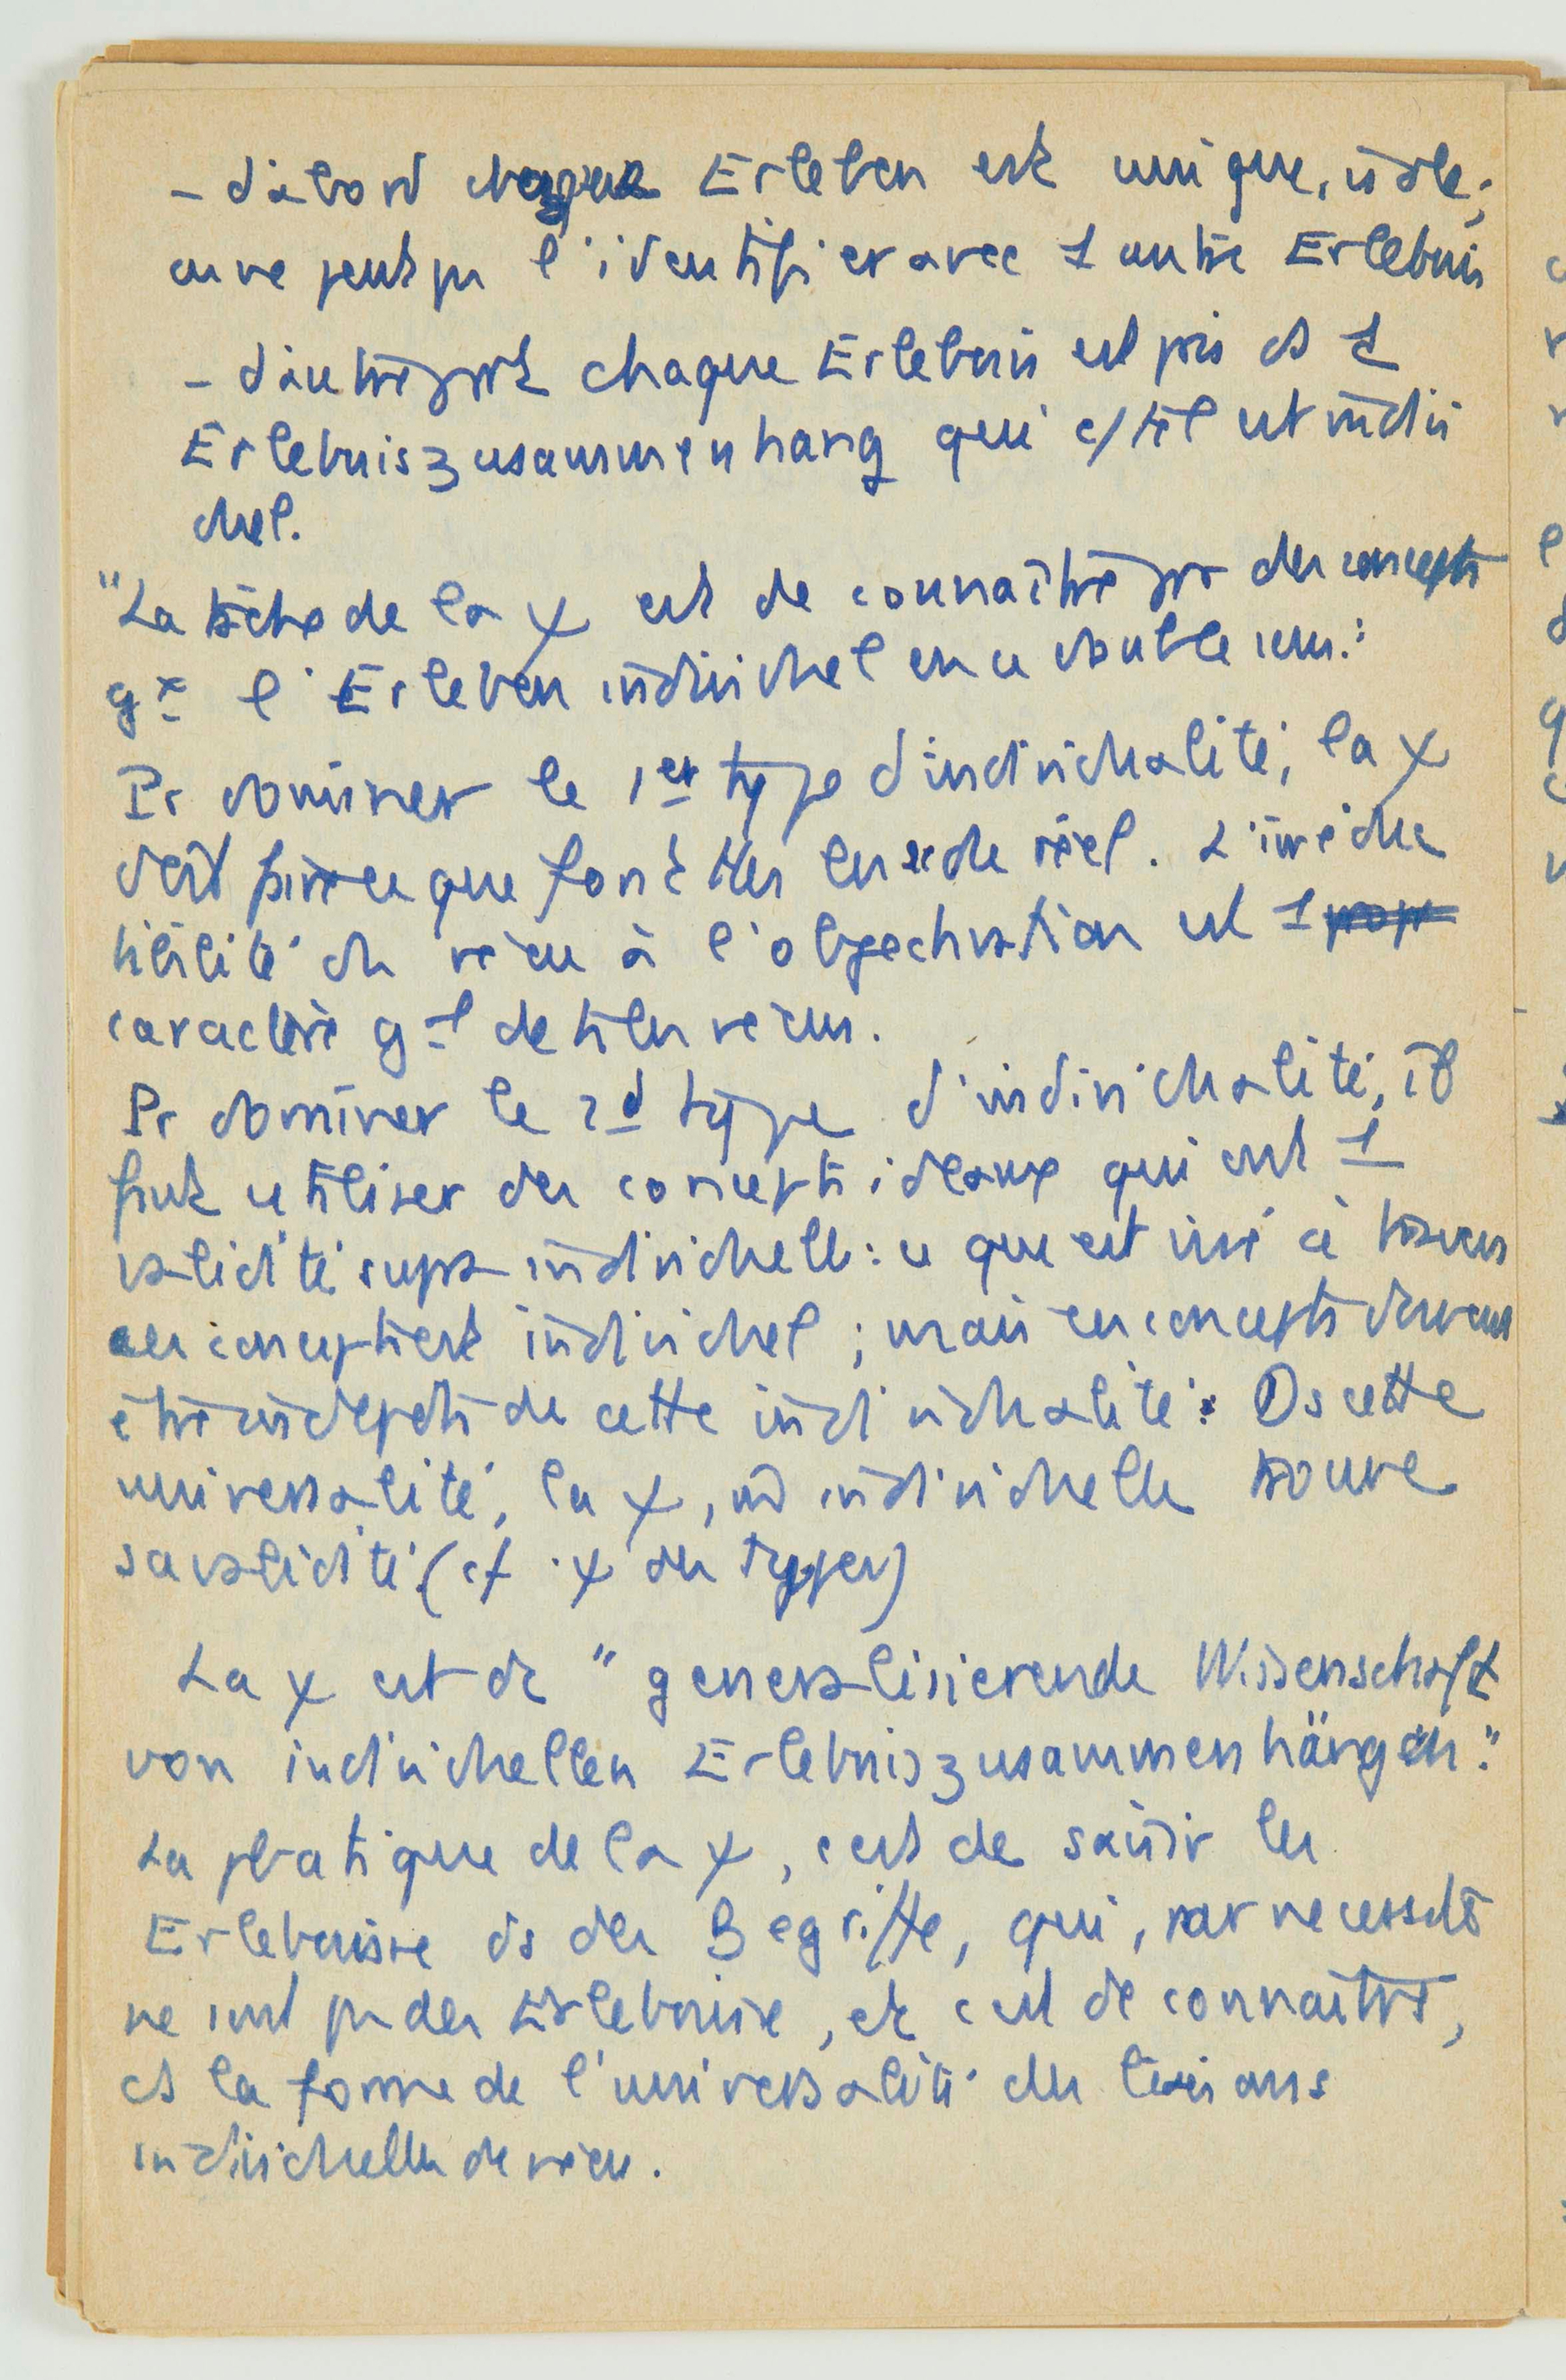 - d'abord chaque Erleben est unique, isolé;
on ne peut pas l'identifier avec 1 autre Erlebnis
- d'autre part chaque Erlebnis est pris ds 1
Erlebniszusammenhang qui c/ tel est indivi
duel.
"La tâche de la χ est de connaître par des concepts
gx l'Erleben individuel en ce double sens:
Pr dominer le 1er type d'individualité, la χ
doit faire ce que font ttes les sc du réel. L'irréduc
tibilité du vécu à l'objectivation est 1
caractère gal de ts les vécus.
Pr dominer le 2d type d'individualité, il
faut utiliser des concepts idéaux qui ont 1
validité supra individuelle: ce que est visé à travers
ces concepts est individuel; mais ces concepts doivent
être indepdts de cette individualité: Ds cette
universalité, la χ, individuelle trouve
sa validité (cf χ des types)
La χ est dc "generalisierende Wissenschaft
von individuellen Erlebniszusammenhängen."
La pratique de la χ, c'est de saisir les
Erlebnisse ds des Begriffe, qui, par necessité
ne sont pas des Erlebnisse, et c'est de connaître,
ds la forme de l'universalité des liaisons
individuelles de vécu.